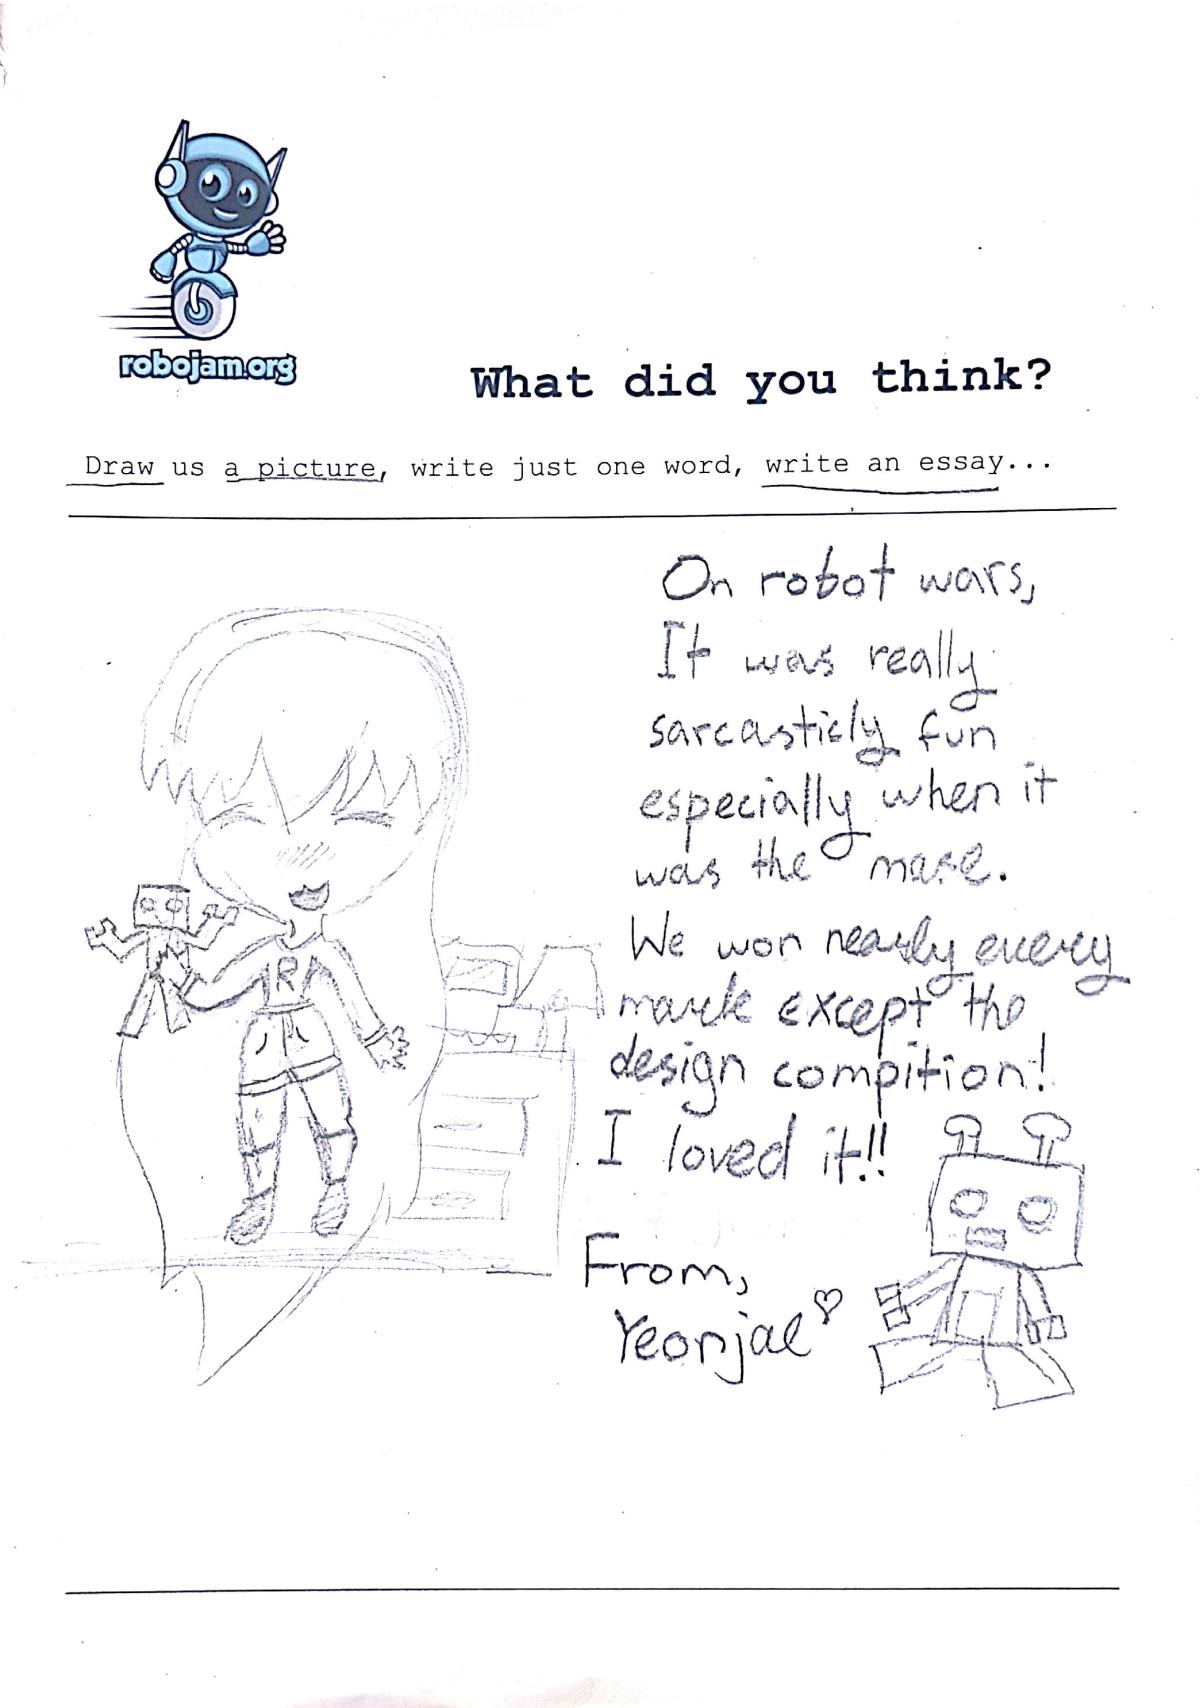 robojam.org
What did you think?
Draw us a picture, write just one word, write an essay...
On robot wars,
It was really
sarcasticly fun
especially when it
was the maze.
We won nearly every
mark except the
design compition!
I loved it!!
From,
Yeonjae ♡
R